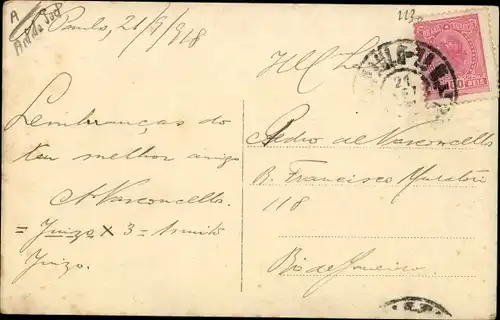 S. Paulo, 21/9/918
Lembranças do
teu melhor amigo
A Vasconcellos.
= Juizo x 3 = Muito
Juizo.
Illmo
Pedro de Vasconcellos
B. Francisco Muratori
118
Rio de Janeiro
21
REIS